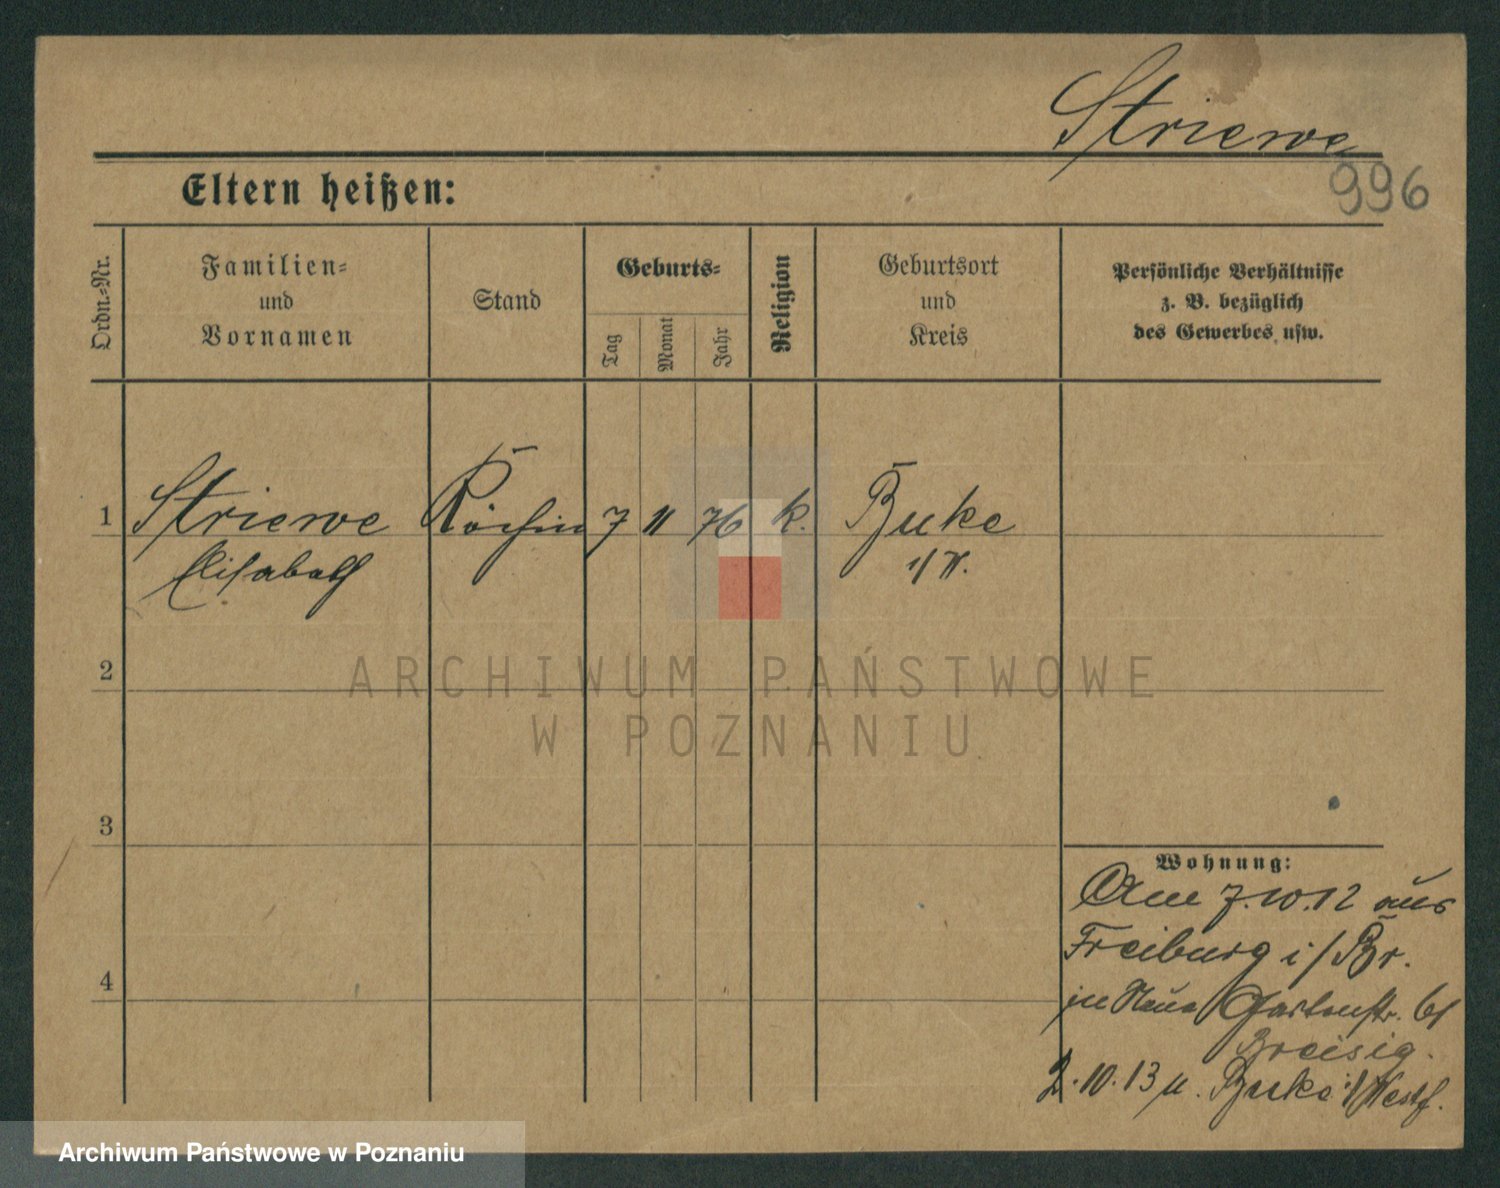 Striewe
996
Eltern heißen:
Ordn.-Nr.
Familien-
und
Vornamen
Stand
Geburts-
Tag
Monat
Jahr
Religion
Geburtsort
und
Kreis
Persönliche Verhältnisse
z. B. bezüglich
des Gewerbes usw.
1
Striewe
Elisabeth
Köchin
7
11
76
k.
Buke
i/W.
2
ARCHIWUM PAŃSTWOWE
W POZNANIU
3
Wohnung:
Am 7.10.12 aus
Freiburg i/Br.
in Neue Gartenstr. 61
Breisig.
4
2.10.13 n. Buke i/Westf.
Archiwum Państwowe w Poznaniu